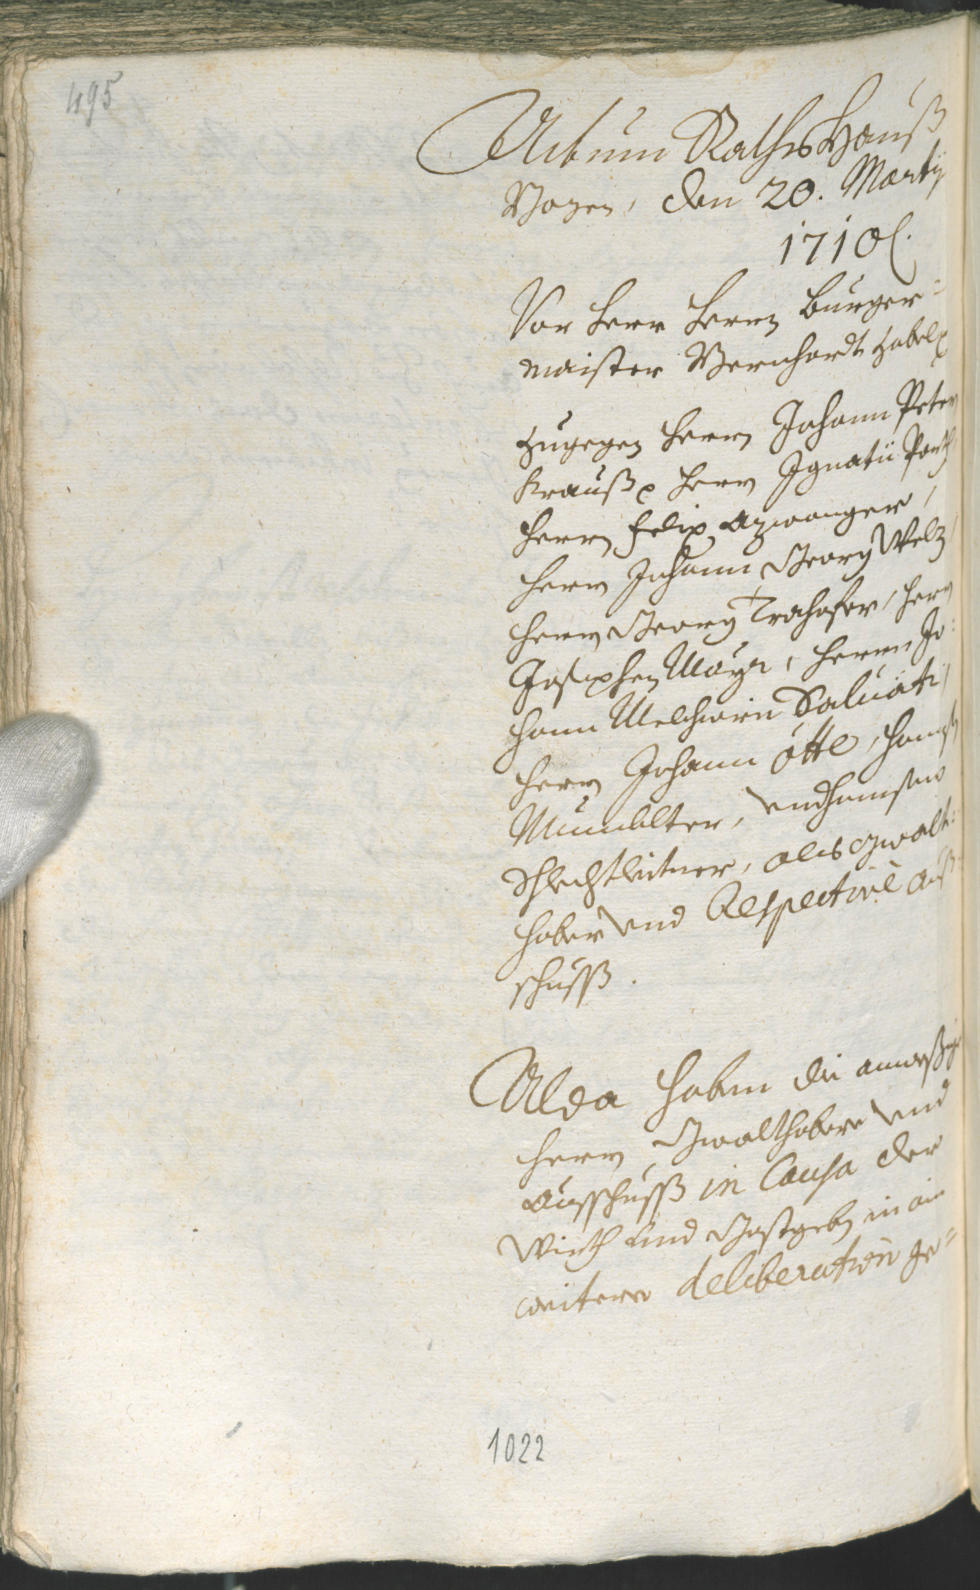 495
Actum Raths Hauß
Bozen, den 20. Marty
1710.
Vor Herr Herrn Burger=
maister Bernhardt Gabel
zugegen Herrn Johann Peter
Krauß Herr Ignatii
Herrn Felix Azwanger,
Herr Johann Georg Welz
Herrn Georg Trahofer, Herr
Josephen Mayr, Herrn Jo=
hann Melchiorn Saluati,
Herrn Johann Otte, Hannß
Mumelter, vnd
Schlechtleitner, als gwalt=
haber vnd Respective auß=
schuß.
Alda haben die
Herrn Gwalthabere vnd
Ausschuß in Causa der
Wirth vnd Gastgeb in ein
weitere deliberation ge=
1022